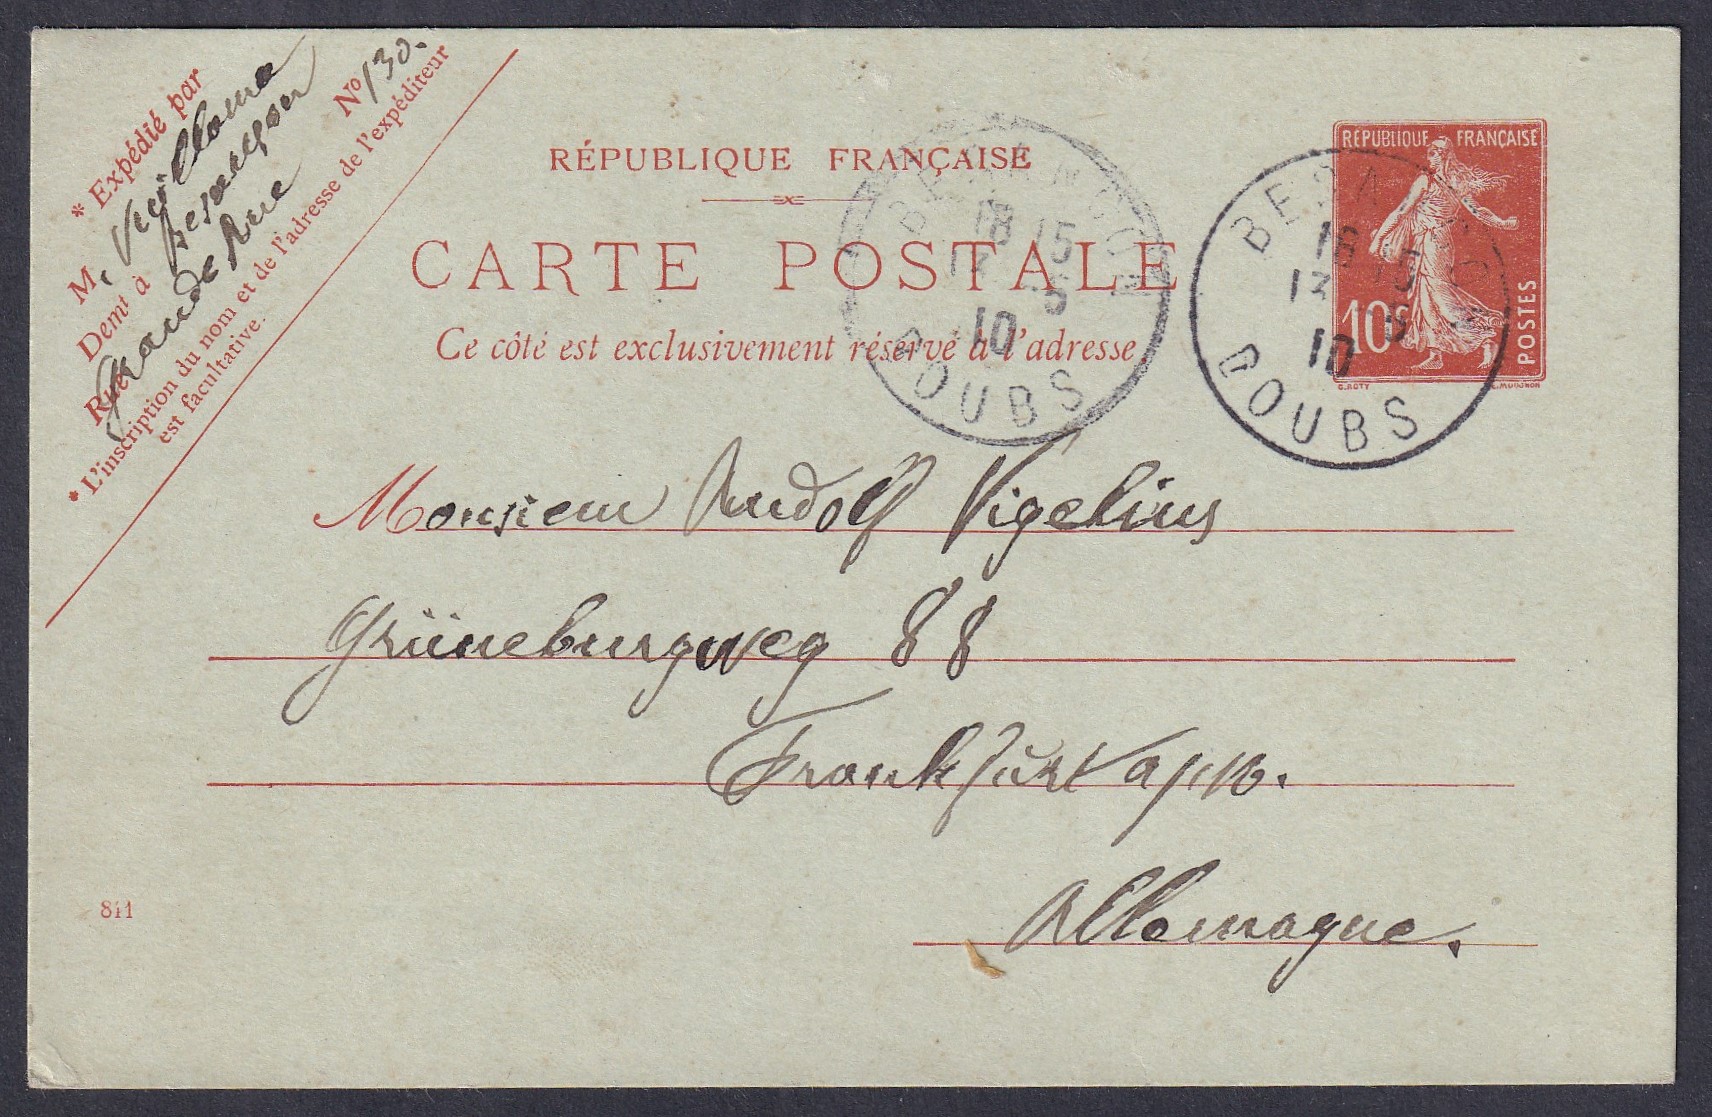 * Expédié par
M. Vuillame
Demt à Besançon
Rue Grande Rue No 130.
* L'inscription du nom et de l'adresse de l'expéditeur
est facultative.
RÉPUBLIQUE FRANÇAISE
CARTE POSTALE
Ce côté est exclusivement réservé à l'adresse
BESANCON
18 15
13 -5
10
DOUBS
RÉPUBLIQUE FRANÇAISE
10c
POSTES
O. ROTY
L. MOUCHON
BESANCON
16 15
13 -5
10
DOUBS
Monsieur Rudolf Vigelius
Grüneburgweg 88
Frankfurt a/M.
Allemagne.
841